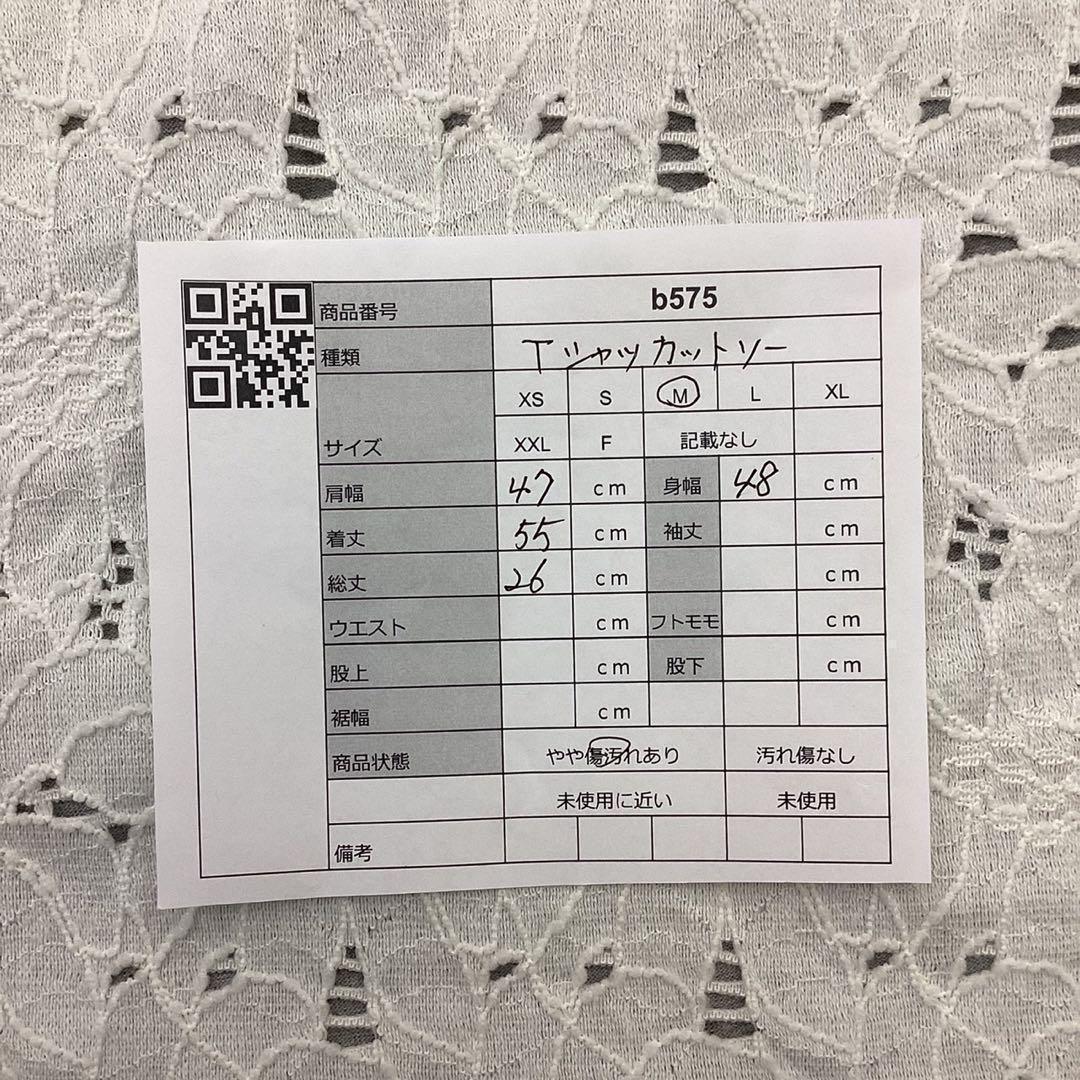 商品番号 b575
種類 Tシャツカットソー
XS S M L XL
サイズ XXL F 記載なし
肩幅 47 cm 身幅 48 cm
着丈 55 cm 袖丈 cm
総丈 26 cm cm
ウエスト cm フトモモ cm
股上 cm 股下 cm
裾幅 cm
商品状態 やや傷汚れあり 汚れ傷なし
未使用に近い 未使用
備考